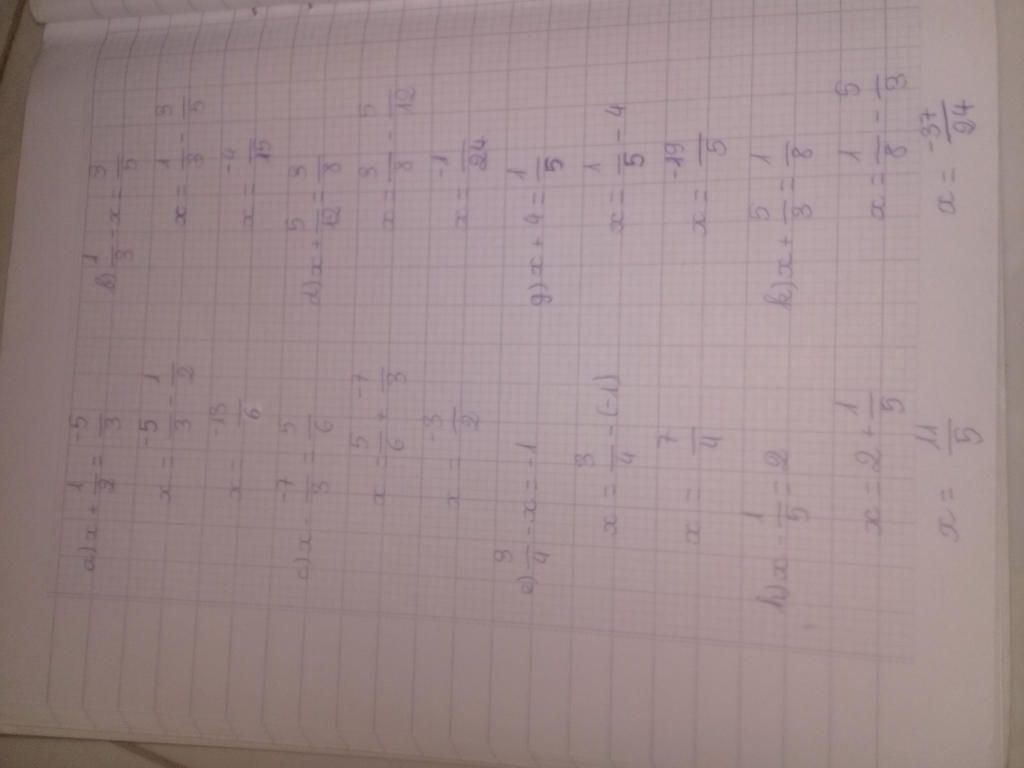 a) x + 1/2 = -5/3
x = -5/3 - 1/2
x = -13/6
b) 1/3 - x = 3/5
x = 1/3 - 3/5
x = -4/15
c) x - -7/3 = 5/6
x = 5/6 + -7/3
x = -3/2
d) x + 5/12 = 3/8
x = 3/8 - 5/12
x = -1/24
e) 3/4 - x = -1
x = 3/4 - (-1)
x = 7/4
g) x + 4 = 1/5
x = 1/5 - 4
x = -19/5
h) x - 1/5 = 2
x = 2 + 1/5
x = 11/5
k) x + 5/3 = 1/8
x = 1/8 - 5/3
x = -37/24